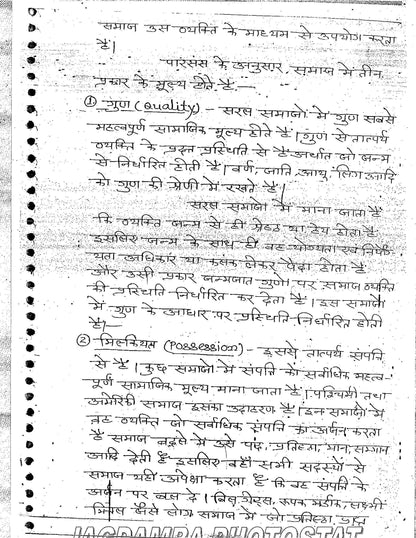 समाज उस व्यक्ति के माध्यम से उपयोग करता
है।
पारसंस के अनुसार, समाज में तीन
प्रकार के मूल्य होते हैं —
① गुण (Quality) - सरल समाजों में गुण सबसे
महत्वपूर्ण सामाजिक मूल्य होते हैं। गुण से तात्पर्य
व्यक्ति के प्रदत्त प्रस्थिति से है अर्थात जो जन्म
से निर्धारित होती है। वर्ण, जाति, आयु, लिंग आदि
को गुण की श्रेणी में रखते हैं।
सरल समाजों में माना जाता है
कि व्यक्ति जन्म से ही श्रेष्ठ या हेय होता है
इसलिए जन्म के साथ ही वह योग्यता एवं निर्यो-
ग्यता अधिकार या लेकर पैदा होता है
और उसी प्रकार जन्मजात गुणों पर समाज व्यक्ति
की प्रस्थिति निर्धारित कर देता है। इस समाजों
में गुण के आधार पर प्रस्थिति निर्धारित होती
है।—
② मिल्कियत (Possession) - इससे तात्पर्य संपत्ति
से है। कुछ समाजों में संपत्ति को सर्वाधिक महत्व-
पूर्ण सामाजिक मूल्य माना जाता है। पश्चिमी तथा
अमेरिकी समाज इसका उदाहरण है। इन समाजों में
वह व्यक्ति जो सर्वाधिक संपत्ति का अर्जन करता
है समाज बदले में उसे पद, प्रतिष्ठा, मान, सम्मान
आदि देती है इसलिए वहाँ सभी सदस्यों से
समाज यही अपेक्षा करता है कि वह संपत्ति के
अर्जन पर बल दे। बिल गेट्स, रूपक मर्डोक, लक्ष्मी
मित्तल जैसे लोग समाज में जो प्रतिष्ठा प्राप्त
JAGDAMBA PHOTOSTAT